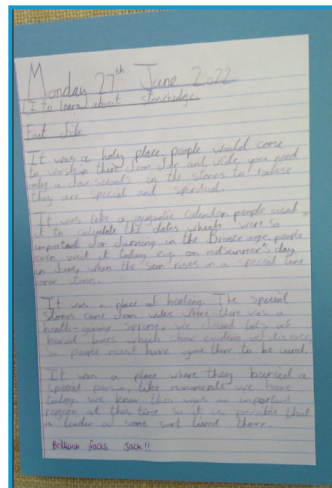 Monday 27th June 2022
LI to learn about stonehedge.
Fact file
It was a holy place, people would come
to worship there from far and wide, you need
only a few seconds in the stones to realise
they are special and spiritual.
It was like a gigantic calendar people used
it to calculate the dates which were so
important for farming in the Bronze age, people
even visit it today e.g. on midsummer's day
in June, when the sun rises in a special line
over stone.
It was a place of healing. The special
stones came from wales where there was a
health-giving spring, we found lots of
buried bones which show evidence of disease,
so people must have gone there to be cured.
It was a place where they buried a
special person, like monuments we have
today. We know this was an important
region at this time so it is possible that
a leader of some sort lived there.
Brilliant facts Jack!!